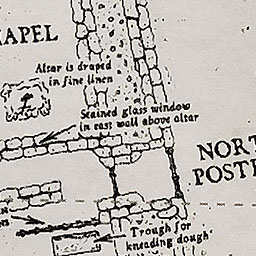 APEL
Altar is draped
in fine linen
Stained glass window
in east wall above altar
NORT
POSTE
Trough for
kneading dough